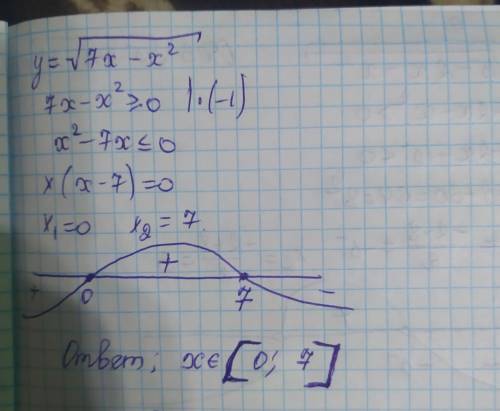 y = √(7x - x²)
7x - x² ≥ 0 | · (-1)
x² - 7x ≤ 0
x(x - 7) = 0
x₁ = 0 x₂ = 7
- + -
0 7
Ответ; x ∈ [0; 7]